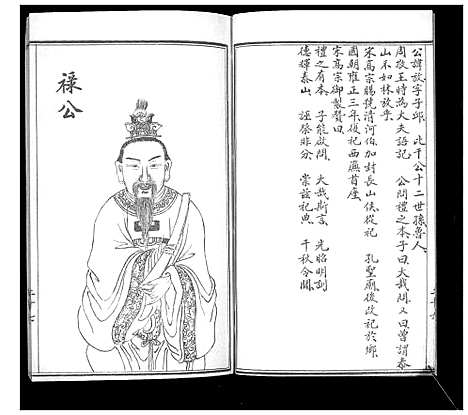 公諱放字子邱。比干公十二世孫魯人。
周敬王時為大夫語記 公問禮之本子曰大哉問又曰曾謂泰
山不如林放乎
宋高宗賜號清河伯加封長山侯從祀 孔聖廟後改祀於鄉
國朝雍正三年復祀西廡首座
宋高宗御製贊曰
禮之有本。子能啟問。大哉斯言。光昭明訓
德輝泰山。誣祭非分。崇茲祀典。千秋令聞。
祿公